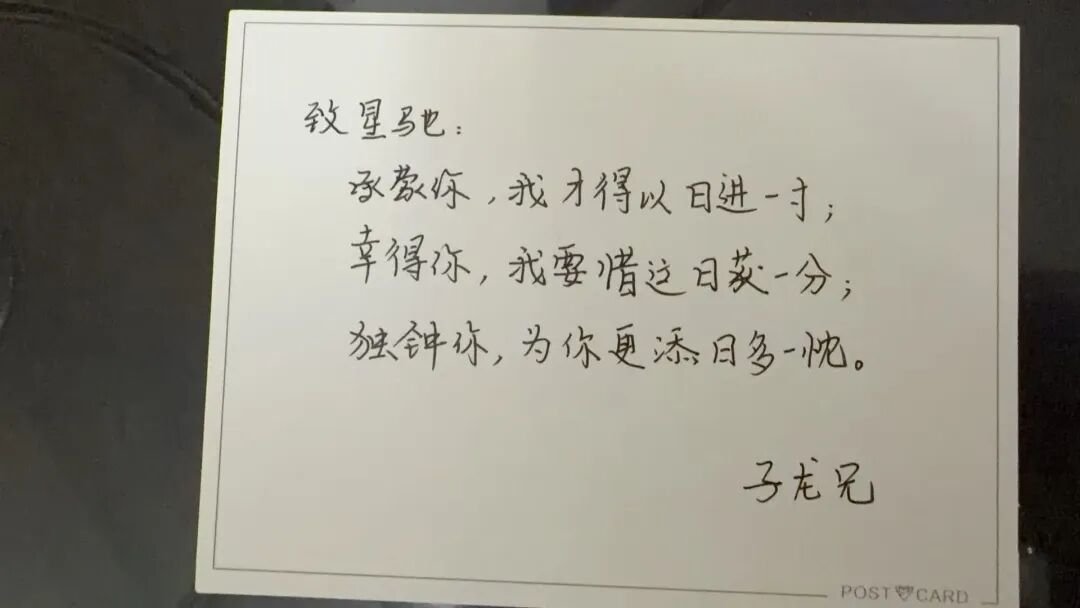 致星驰：
承蒙你，我才得以日进一寸；
幸得你，我要惜这日获一分；
独钟你，为你更添日多一忱。
子龙兄
POST CARD